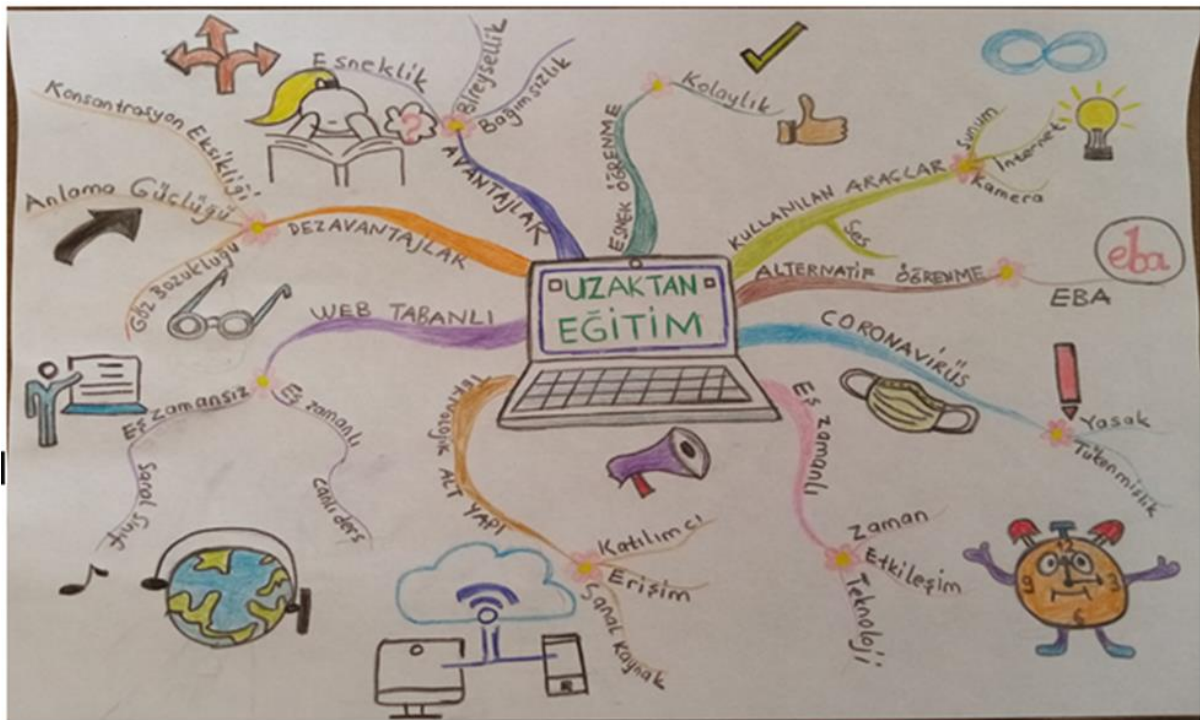 UZAKTAN
EĞİTİM
AVANTAJLAR
Esneklik
Bireysellik
Bağımsızlık
ESNEK ÖĞRENME
Kolaylık
KULLANILAN ARAÇLAR
Sunum
İnternet
Kamera
Ses
ALTERNATİF ÖĞRENME
EBA
eba
CORONAVİRÜS
Yasak
Tükenmişlik
Eş zamanlı
Zaman
Etkileşim
Teknoloji
TEKNOLOJİK ALT YAPI
Katılımcı
Erişim
Sanal Kaynak
WEB TABANLI
Eş zamansız
Sanal Sınıf
Eş zamanlı
Canlı ders
DEZAVANTAJLAR
Konsantrasyon Eksikliği
Anlama Güçlüğü
Göz Bozukluğu
?
12
3
6
9